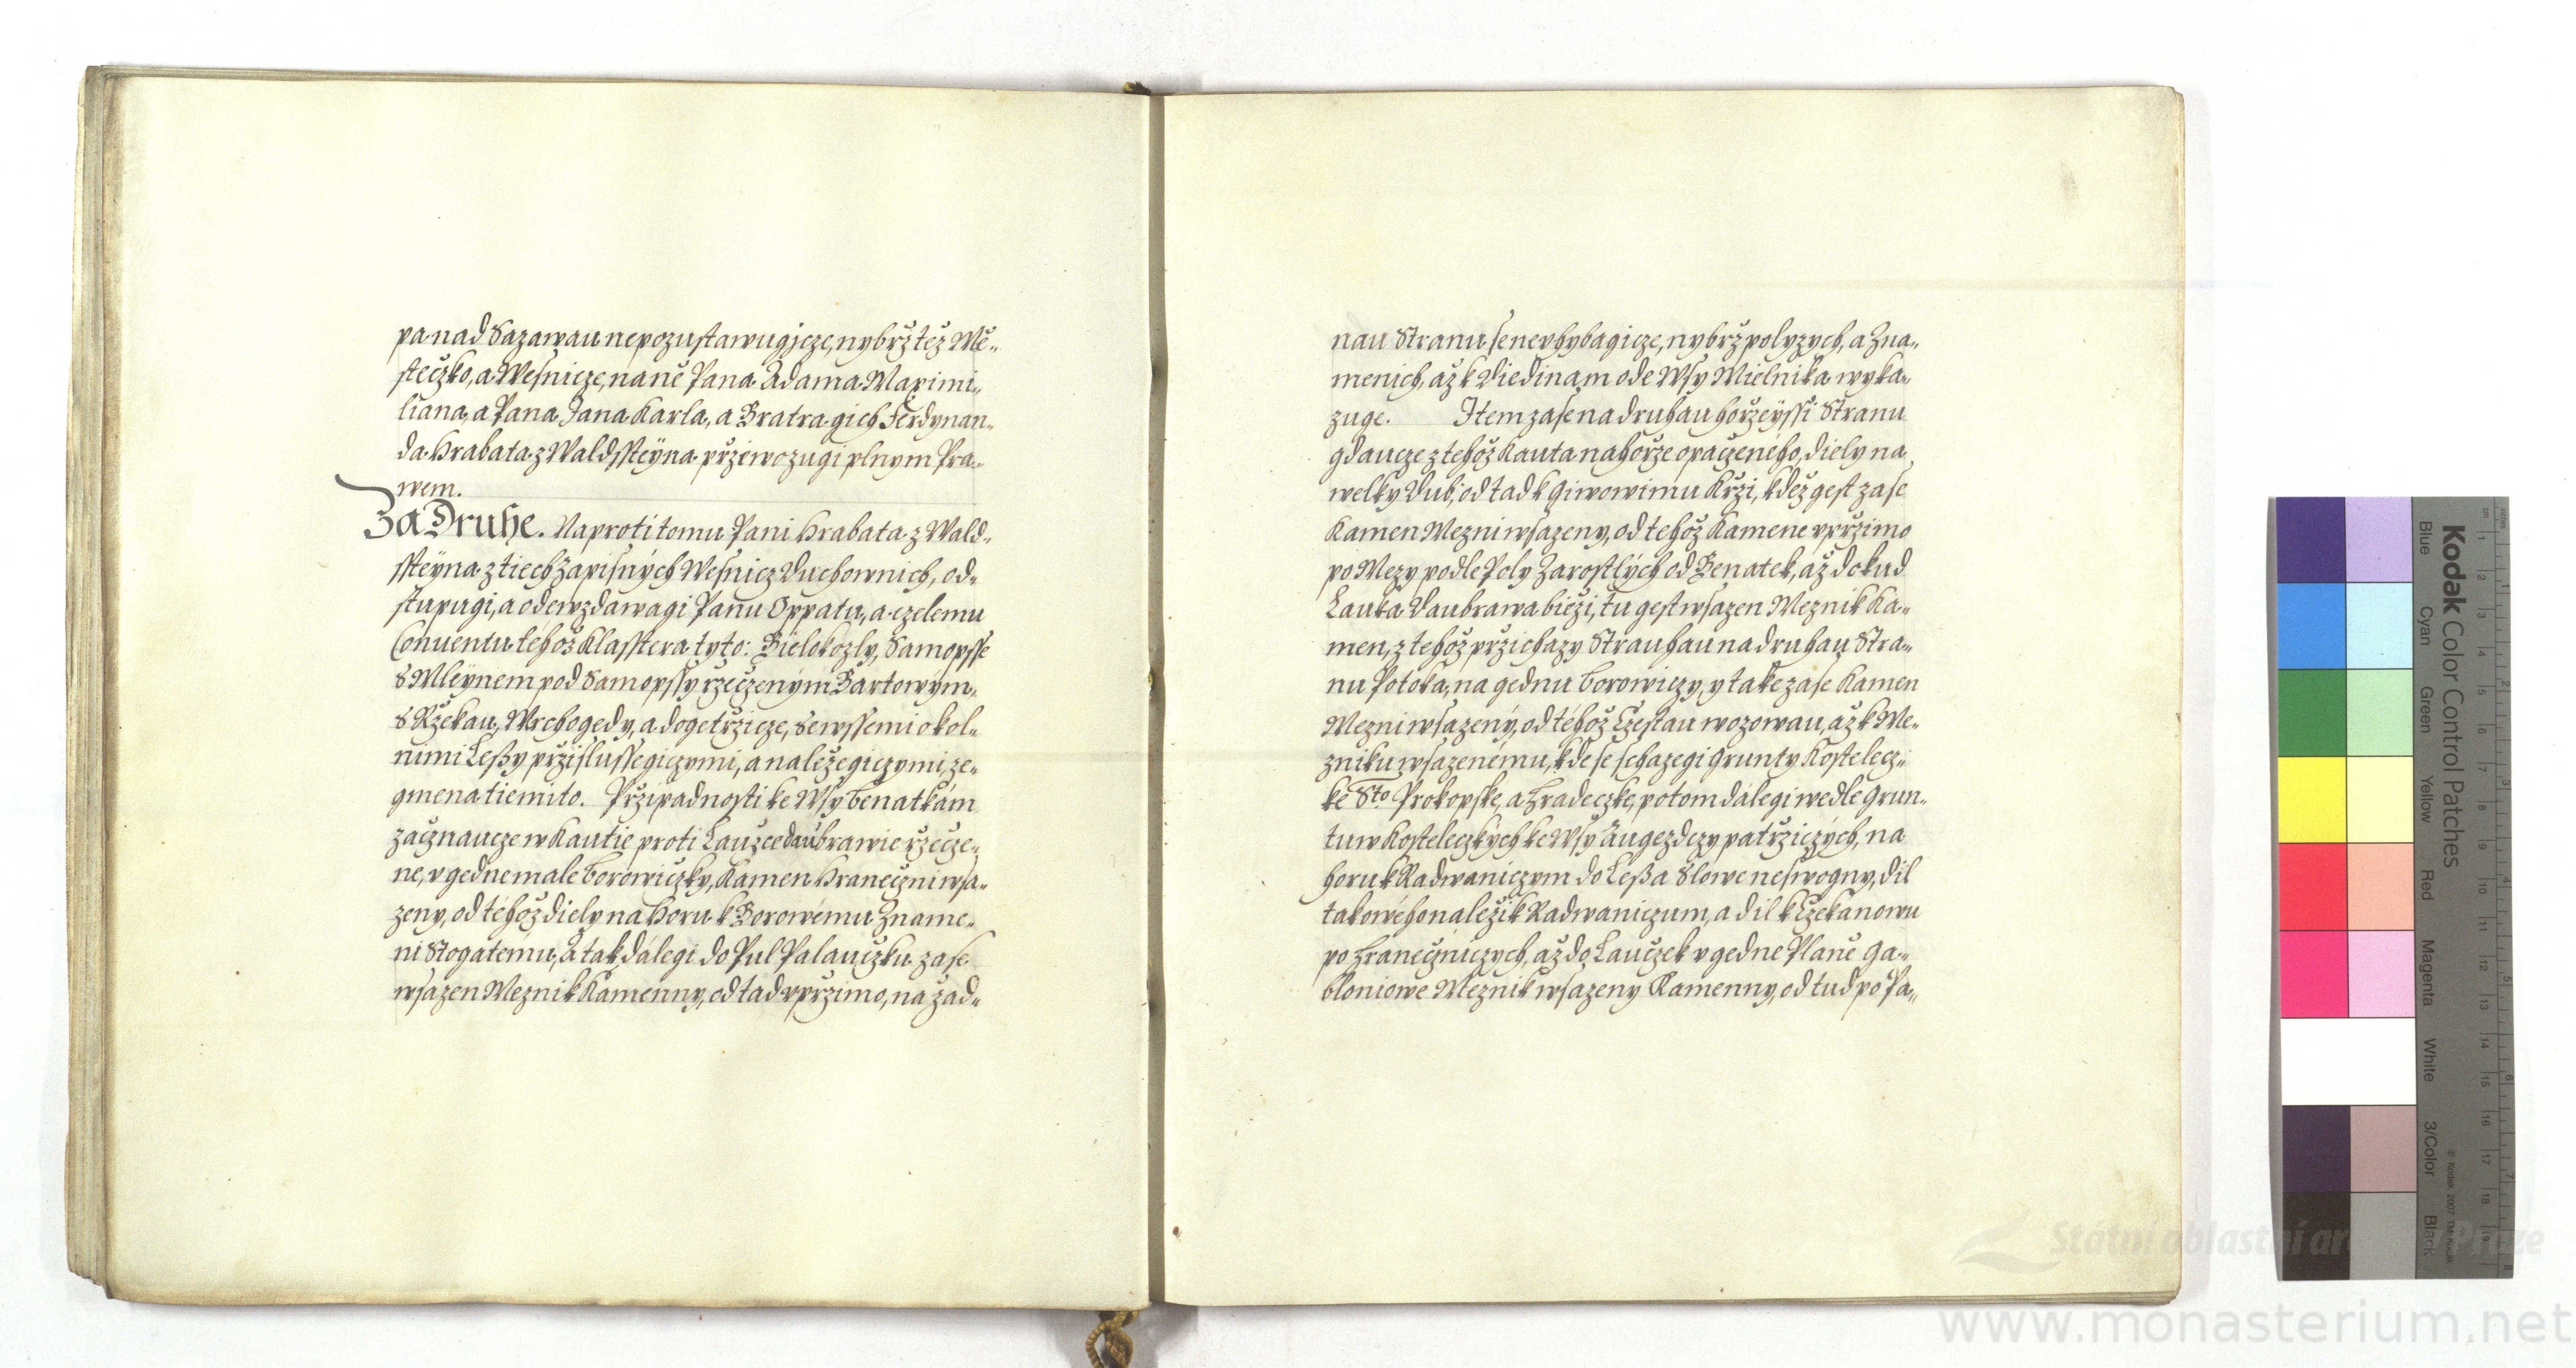 pa nad Sazawau nepozustawugjcze, nybrž tež Mě„
stečzko, a Wesnicze, na ně Pana Adama Maximi„
liana, a Pana Jana Karla, a Bratra gich Ferdynan„
da Hrabata z Waldssteyna przewozugi plnym Pra„
wem.
Za Druhe. Naproti tomu Pani Hrabata z Wald„
ssteyna z tiech Zapisných Wesnicz Duchownich, od„
stupugi, a odewzdawagi Panu Oppatu, a czelemu
Conuentu tehož Klasstera tyto: Bielokozly, Samopsse
S Mleynem pod Samopssy rzeczeným Bartowým„
S Rzekau, Wrchogedy, a dogetržicze, se wssemi okol„
nimi Leßy pržislussegiczymi, a naležegiczymi ze„
gmena tiemito. Pržipadnosti ke Wsy Benatkám
začznaucze w Kautie proti Lauzce daubrawie ržečze„
ne, v gedne male Borowičzky, Kamen Hranečzni wsa„
zeny, od téhož diely na Horu k Borowému Zname„
ni Stogatému, A tak dálegi do Pul Palaučzku zase
wsazen Meznik Kamenny, od tad vpržimo, na žad„
nau Stranu se nevhybagicze, nybrž po lyzych, a Zna„
menich, až k Diedinam ode Wsy Mielnika wyka„
zuge. Item zase na druhau horžeyssi Stranu
gdaucze z tehož Kauta nahorže opačzeného, diely na
welky Dub, od tad k Giwowimu Krži, kdež gest zase
Kamen Mezni wsazeny, od tehož Kamene vpržimo
po Mezy podle Poly Zarostlých od Benatek, až dokud
Lauka Daubrawa bieži, tu gest wsazen Meznik Ka„
men, z tehož pržichazy Strauhau na druhau Stra„
nu Potoka, na gednu Borowiczy, y take zase Kamen
Mezni wsazený, od téhož Czestau wozowau, až k Me„
zniku wsazenému, kde se schazegi Grunty Kostelecz„
ké Sto Prokopske, a Hradeczke, potom dálegi wedle Grun„
tuw Kosteleczkých ke Wsy Augezdczy patržiczých, na
horu k Radwaniczym do Leßa Slowe neswogny, dil
takowého naležik Radwaniczum, a dil k Czekanowu
po Hranečzniczych, až do Laučzek v gedne Planě Ga„
bloniowe Meznik wsazeny Kamenny, od tud po Pa„
Kodak Color Control Patches
Blue
Cyan
Green
Yellow
Red
Magenta
White
3/Color
Black
© Kodak, 2007 TM: Kodak
www.monasterium.net